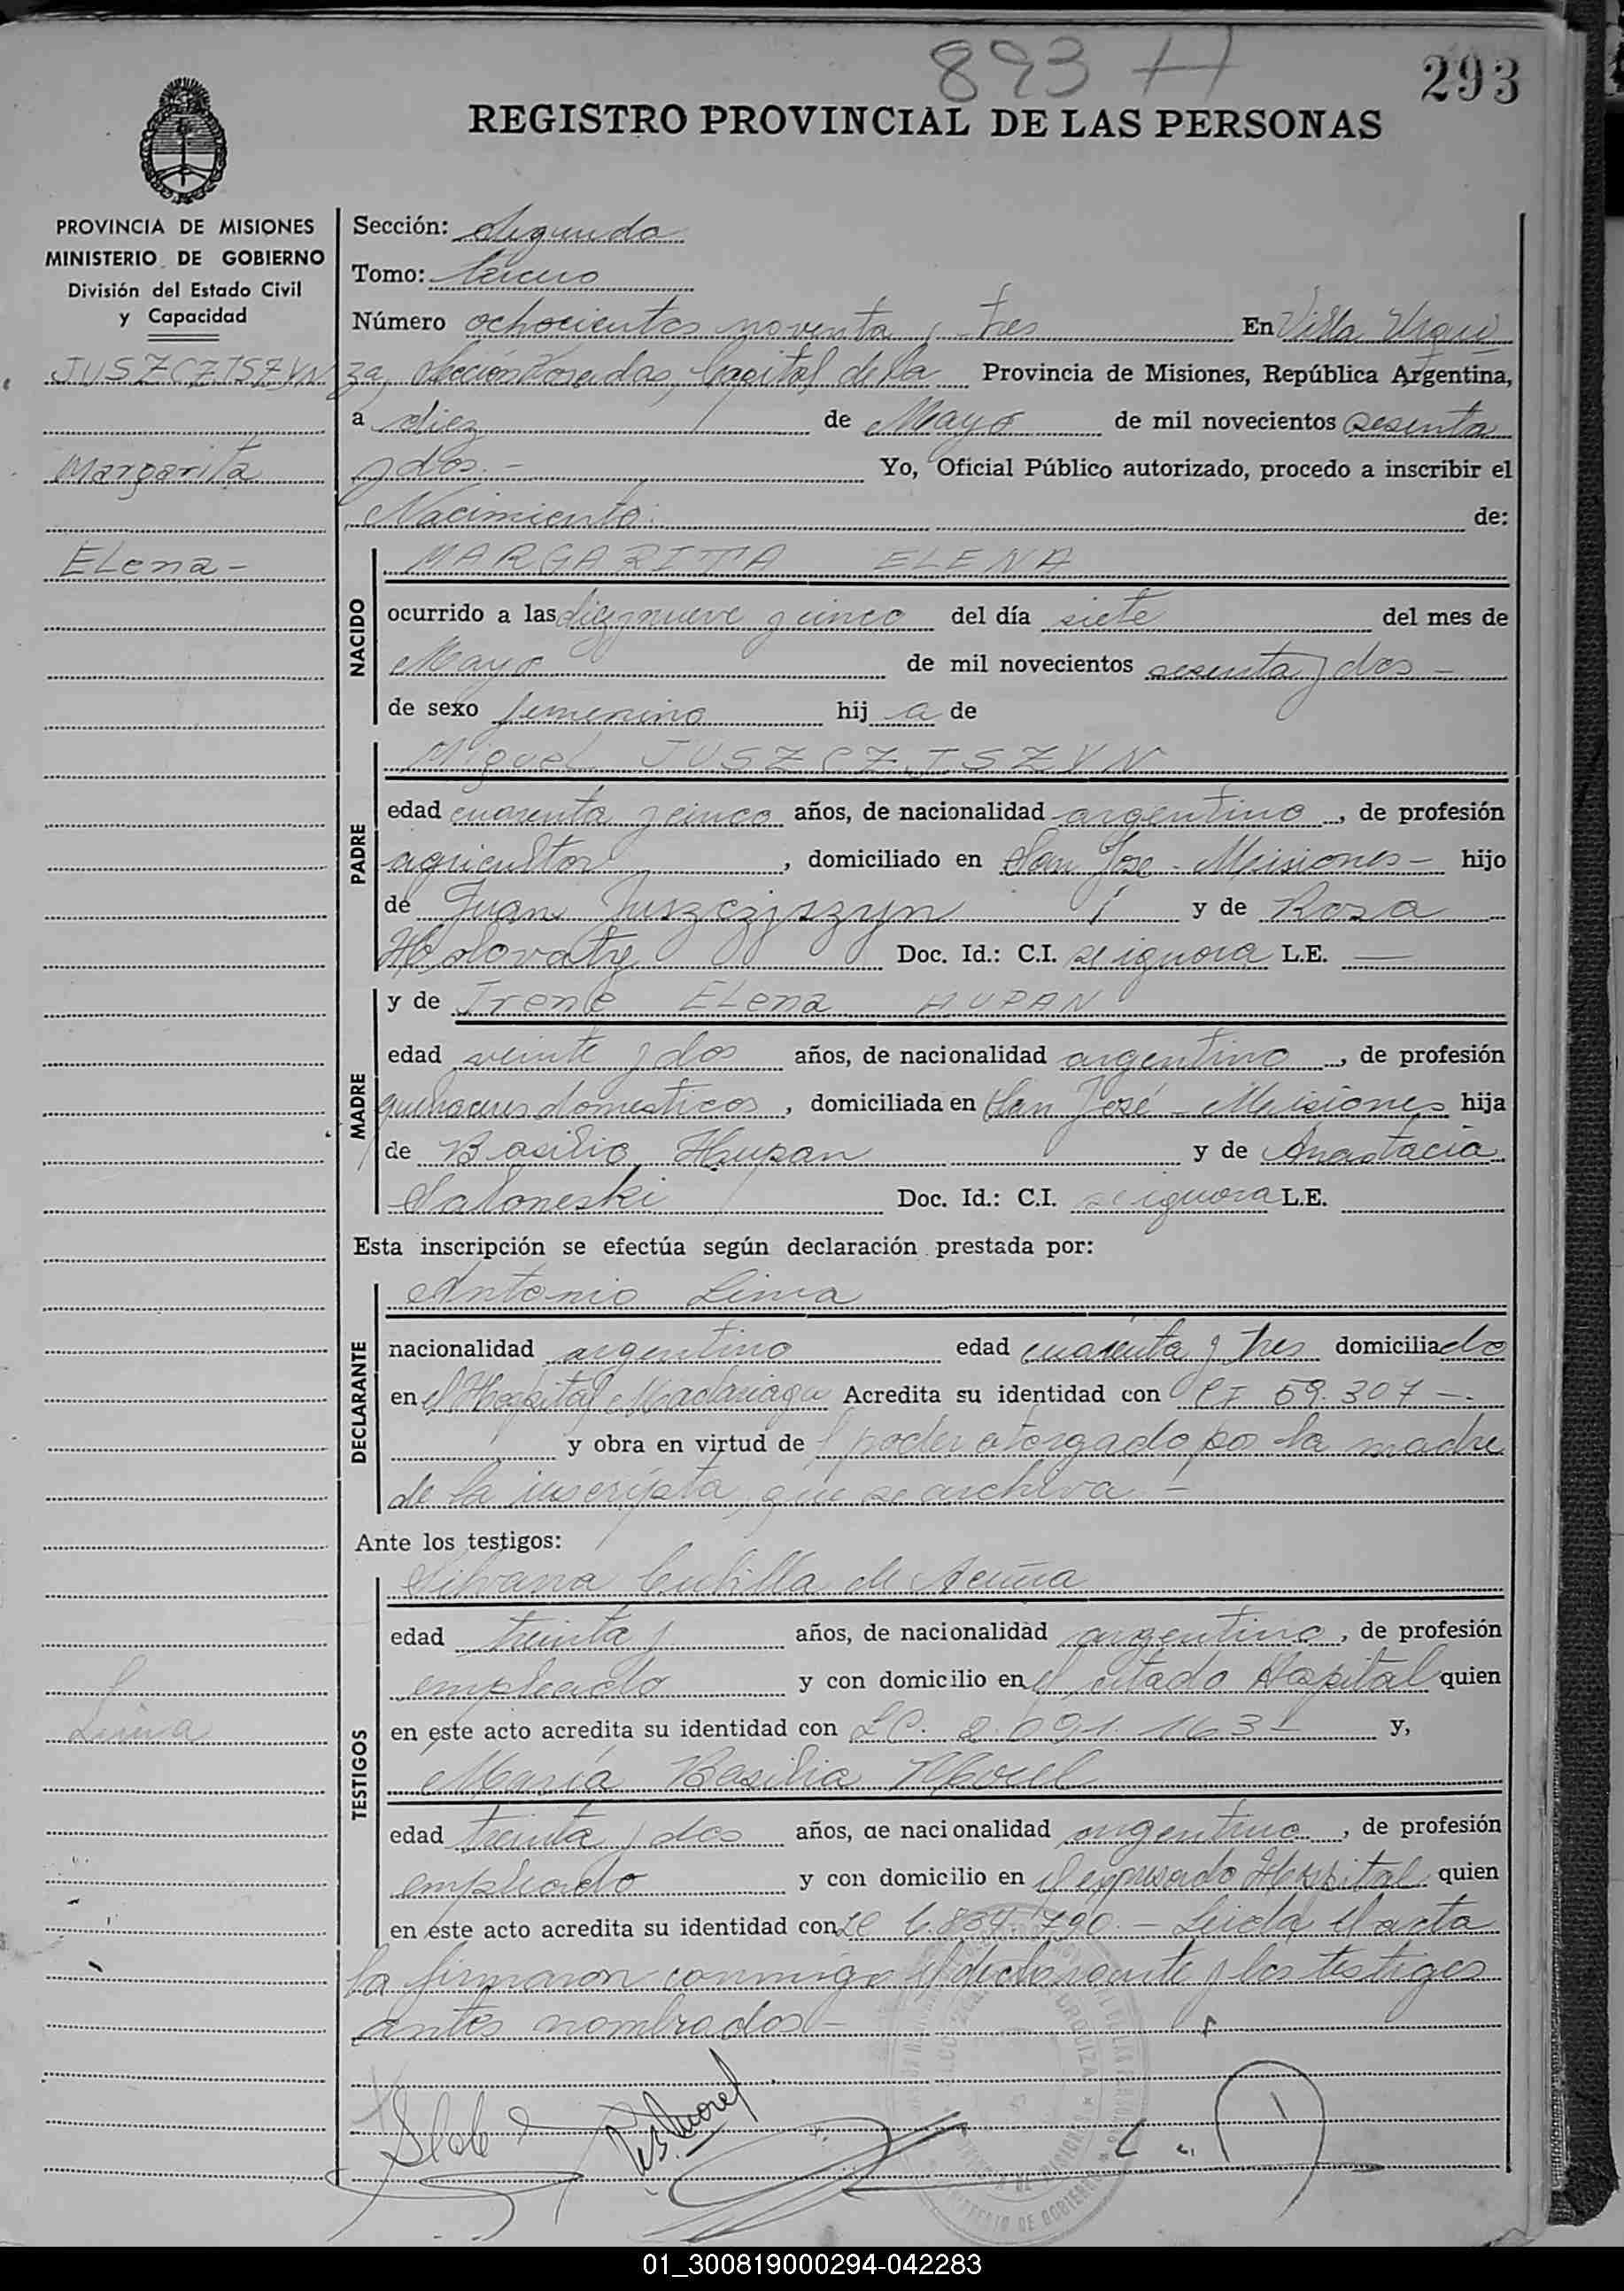 893 H
293
REGISTRO PROVINCIAL DE LAS PERSONAS
PROVINCIA DE MISIONES
MINISTERIO DE GOBIERNO
División del Estado Civil
y Capacidad
JUSZCZJSZYN
Margarita
Elena-
Lima
Sección: Segunda
Tomo: tercero
Número ochocientos noventa y tres En Villa Urqui
za, Sección Posadas, Capital de la Provincia de Misiones, República Argentina,
a diez de Mayo de mil novecientos sesenta
y dos.- Yo, Oficial Público autorizado, procedo a inscribir el
Nacimiento de:
NACIDO
MARGARITA ELENA
ocurrido a las diez nueve y cinco del día siete del mes de
Mayo de mil novecientos sesenta y dos -
de sexo femenino hij a de
PADRE
Miguel JUSZCZJSZYN
edad cuarenta y cinco años, de nacionalidad argentino, de profesión
agricultor, domiciliado en San José - Misiones - hijo
de Juan Juszczjszyn y de Rosa
Holovaty Doc. Id.: C.I. se ignora L.E. —
MADRE
y de Irene Elena HUPAN
edad veinte y dos años, de nacionalidad argentino, de profesión
quehaceres domesticos, domiciliada en San José - Misiones hija
de Basilio Hupan y de Anastacia
Saloneski Doc. Id.: C.I. se ignora L.E.
Esta inscripción se efectúa según declaración prestada por:
DECLARANTE
Antonio Lima
nacionalidad argentino edad cuarenta y tres domiciliado
en el Hospital Madariaga Acredita su identidad con CI 59.307 -.
y obra en virtud de l poder otorgado por la madre
de la inscripta, que se archiva -
Ante los testigos:
TESTIGOS
Silvana Cubilla de Acuña
edad treinta años, de nacionalidad argentina, de profesión
empleado y con domicilio en el citado Hospital quien
en este acto acredita su identidad con LC. 2.091.163- y,
María Basilia Morel
edad treinta y dos años, de nacionalidad argentina, de profesión
empleado y con domicilio en el expresado Hospital quien
en este acto acredita su identidad con LC 6.834.790.- Leida el acta
la firmaron conmigo el declarante y los testigos
antes nombrados -
01_300819000294-042283